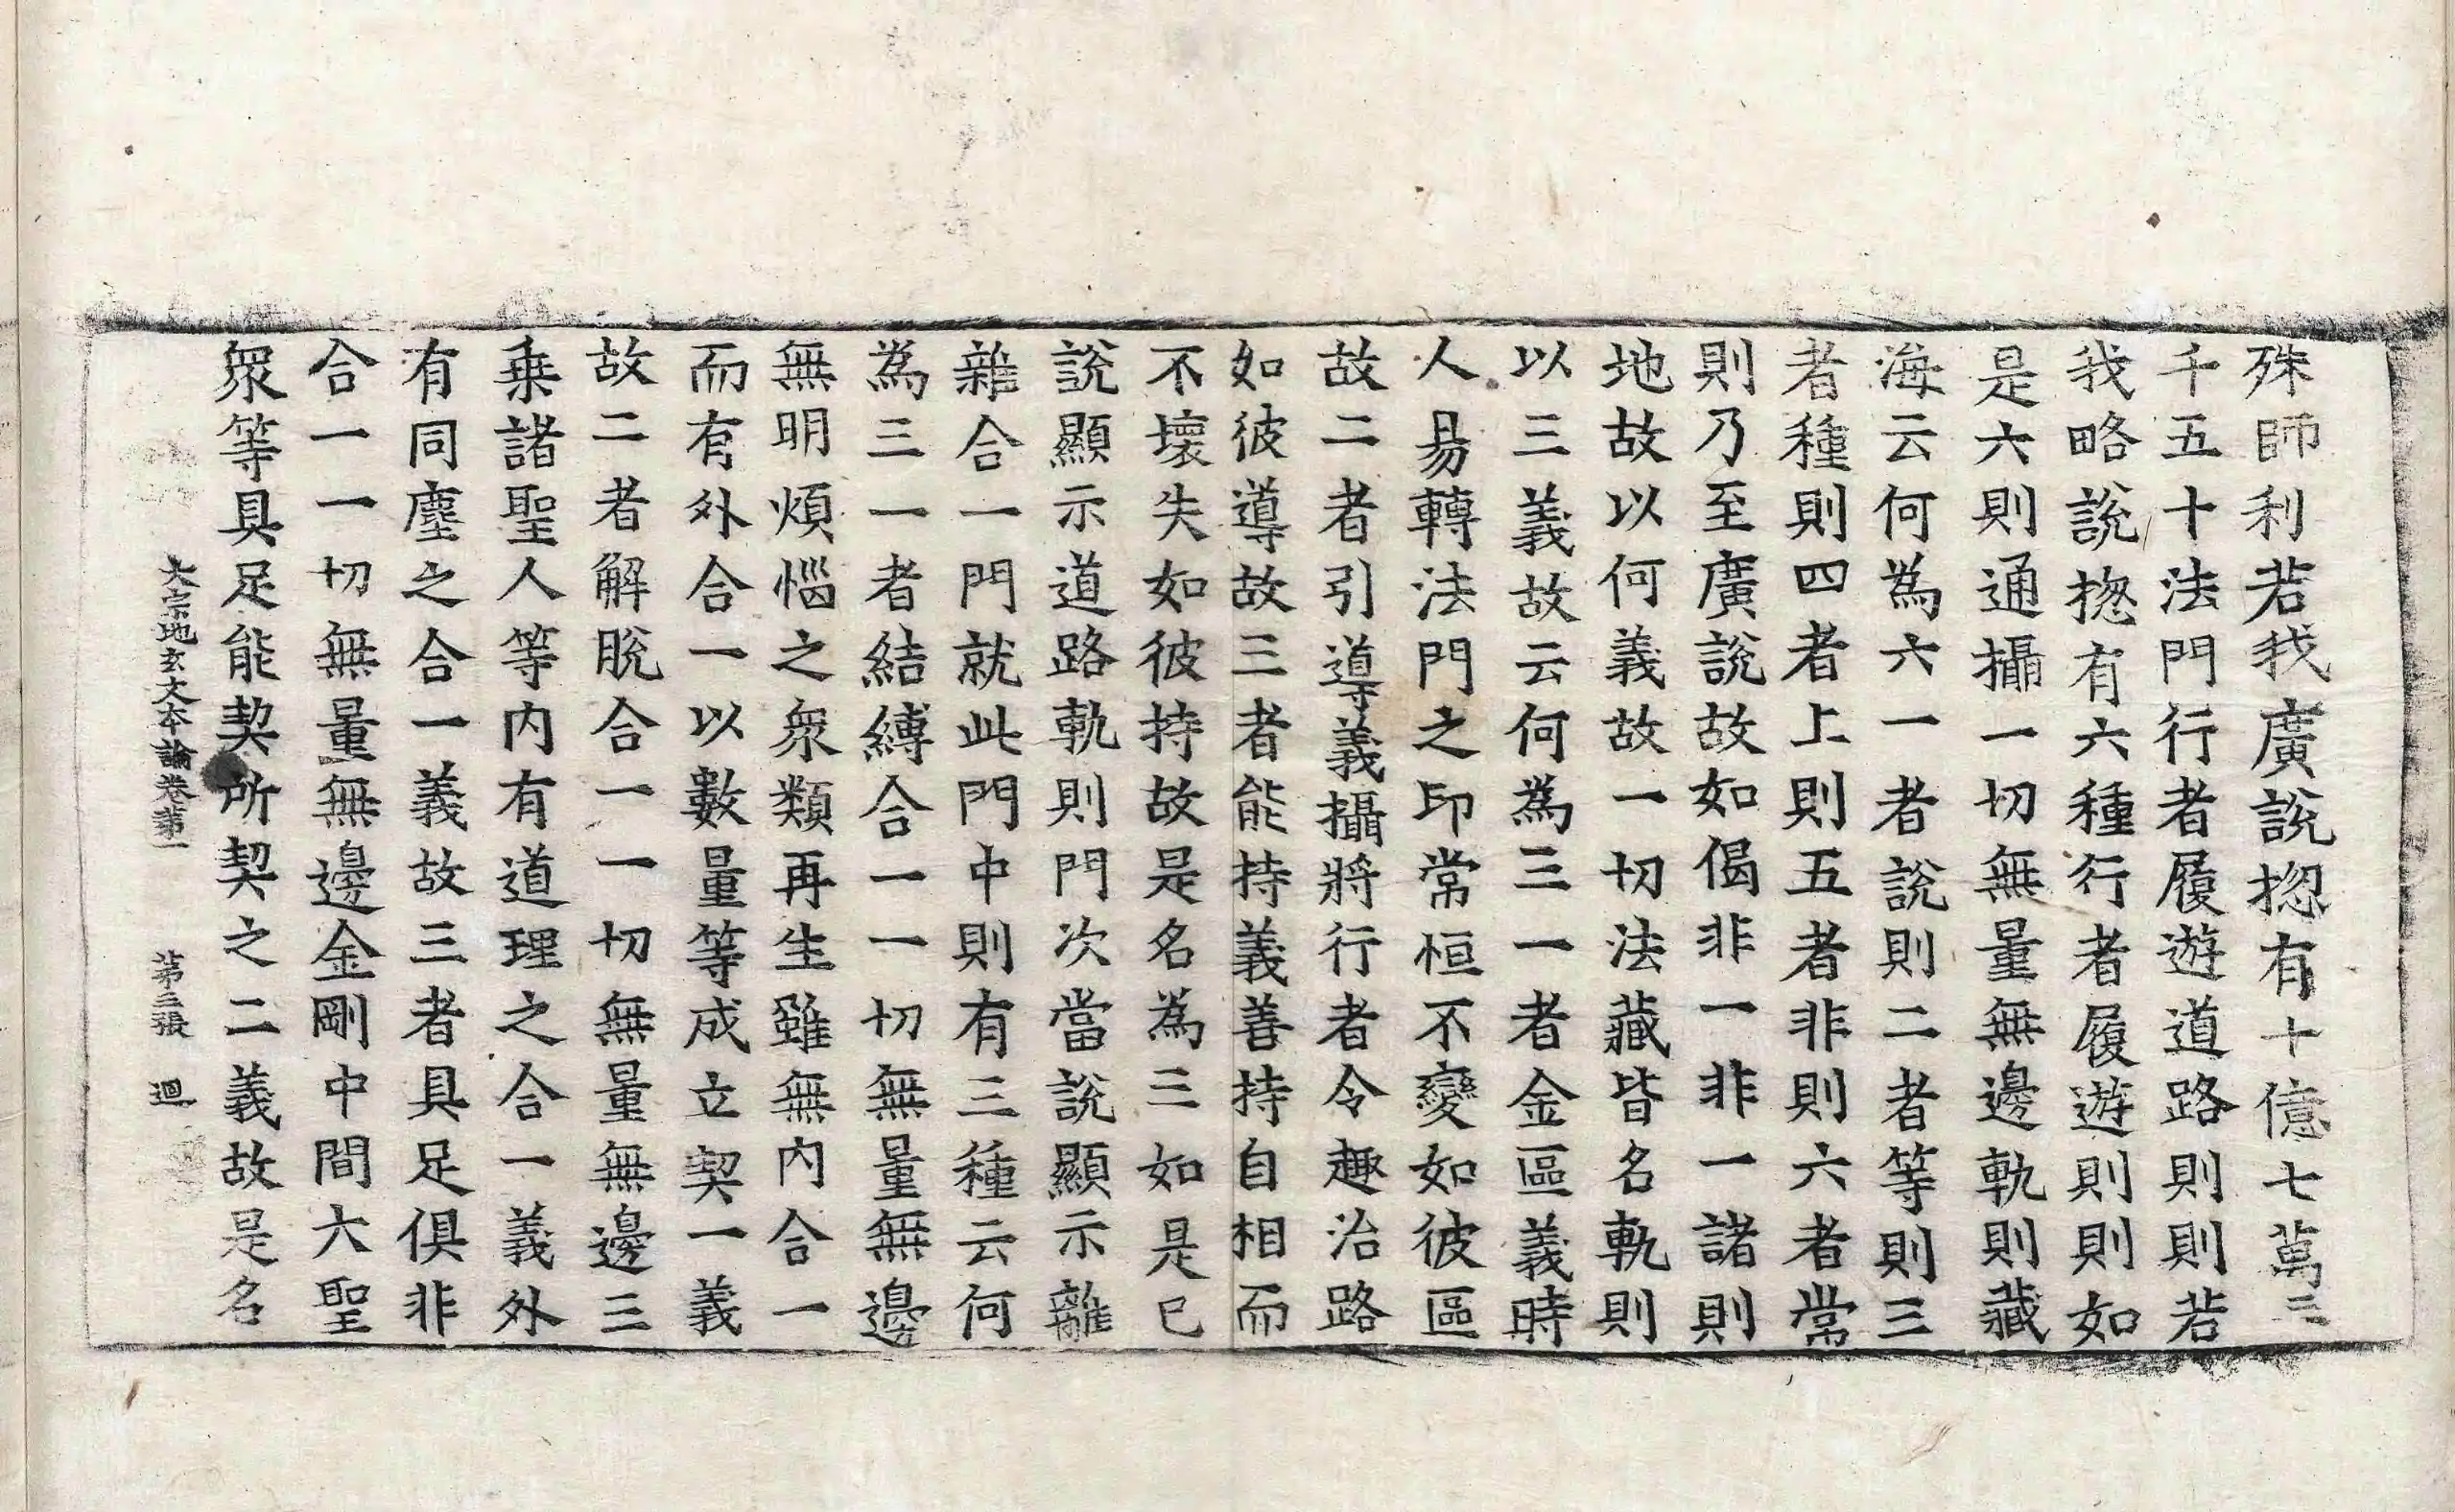 殊師利若我廣說捴有十億七萬三
千五十法門行者履遊道路則則若
我略說捴有六種行者履遊則則如
是六則通攝一切無量無邊軌則藏
海云何為六一者說則二者等則三
者種則四者上則五者非則六者常
則乃至廣說故如偈非一非一諸則
地故以何義故一切法藏皆名軌則
以三義故云何為三一者金區義時
人易轉法門之印常恒不變如彼區
故二者引導義攝將行者令趣治路
如彼導故三者能持義善持自相而
不壞失如彼持故是名為三如是已
說顯示道路軌則門次當說顯示離
雜合一門就此門中則有三種云何
為三一者結縛合一一切無量無邊
無明煩惱之衆類再生雖無內合一
而有外合一以數量等成立契一義
故二者解脫合一一切無量無邊三
乗諸聖人等內有道理之合一義外
有同塵之合一義故三者具足俱非
合一一切無量無邊金剛中間大聖
衆等具足能契所契之二義故是名
大宗地玄文本論卷第一 第三張 迴